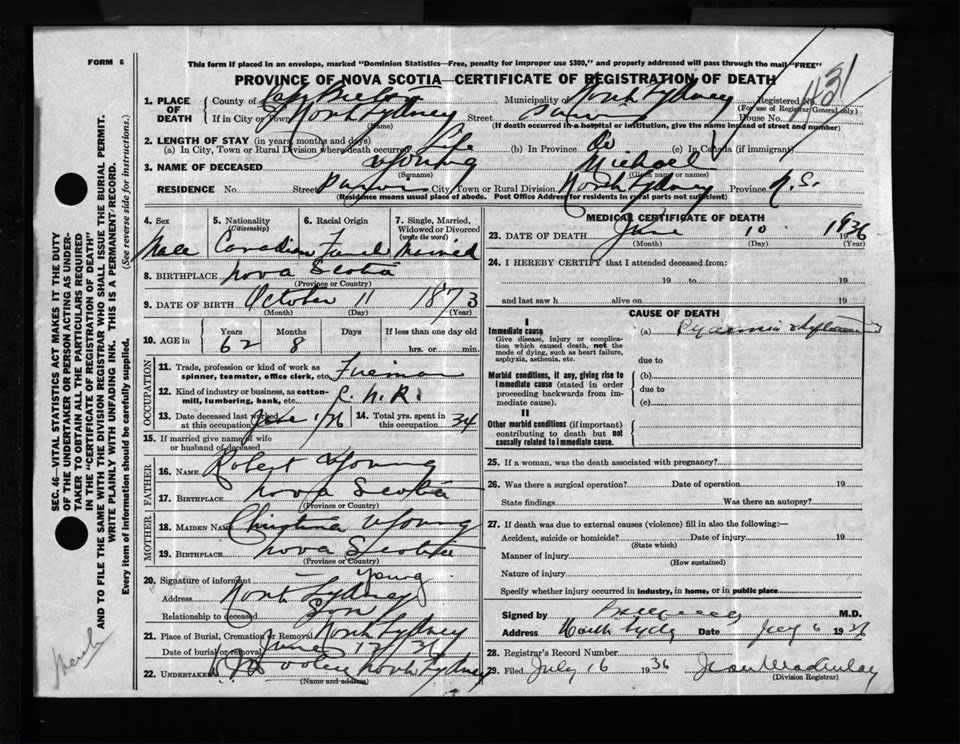 FORM 6
This form if placed in an envelope, marked "Dominion Statistics—Free, penalty for improper use $300," and properly addressed will pass through the mail "FREE"
PROVINCE OF NOVA SCOTIA—CERTIFICATE OF REGISTRATION OF DEATH
1. PLACE OF DEATH
County of Cape Breton Municipality of North Sydney Registered No.
(For use of Registrar General only)
If in City or Town North Sydney Street House No.
(Name)
(If death occurred in a hospital or institution, give the name instead of street and number)
2. LENGTH OF STAY (in years, months and days)
(a) In City, Town or Rural Division where death occurred Life (b) In Province Do (c) In Canada (if immigrant)
3. NAME OF DECEASED Young Michael
(Surname) (Given name or names)
RESIDENCE No Street City, Town or Rural Division North Sydney Province N.S.
(Residence means usual place of abode. Post Office Address for residents in rural parts not sufficient)
4. Sex
Male
5. Nationality (Citizenship)
Canadian
6. Racial Origin
7. Single, Married, Widowed or Divorced (write the word)
Married
8. BIRTHPLACE Nova Scotia
(Province or Country)
9. DATE OF BIRTH October 11 1873
(Month) (Day) (Year)
10. AGE in
Years Months Days If less than one day old
62 8 hrs. or min.
OCCUPATION
11. Trade, profession or kind of work as spinner, teamster, office clerk, etc. Fireman
12. Kind of industry or business, as cotton-mill, lumbering, bank, etc. C.N.R.
13. Date deceased last worked at this occupation
14. Total yrs. spent in this occupation 34
15. If married give name of wife or husband of deceased
FATHER
16. NAME Robert Young
17. BIRTHPLACE Nova Scotia
(Province or Country)
MOTHER
18. MAIDEN NAME Christina Young
19. BIRTHPLACE Nova Scotia
(Province or Country)
20. Signature of informant Young
Address North Sydney
Relationship to deceased Son
21. Place of Burial, Cremation or Removal North Sydney
Date of burial or removal June 12 36
22. UNDERTAKER North Sydney
(Name and address)
MEDICAL CERTIFICATE OF DEATH
23. DATE OF DEATH June 10 1936
(Month) (Day) (Year)
24. I HEREBY CERTIFY that I attended deceased from:
19 to 19
and last saw h alive on 19
CAUSE OF DEATH
I
Immediate cause
Give disease, injury or complication which caused death, not the mode of dying, such as heart failure, asphyxia, asthenia, etc.
(a)
due to
Morbid conditions, if any, giving rise to immediate cause (stated in order proceeding backwards from immediate cause).
(b)
due to
(c)
II
Other morbid conditions (if important) contributing to death but not causally related to immediate cause.
25. If a woman, was the death associated with pregnancy?
26. Was there a surgical operation? Date of operation 19
State findings Was there an autopsy?
27. If death was due to external causes (violence) fill in also the following:—
Accident, suicide or homicide? Date of injury 19
(State which)
Manner of injury
(How sustained)
Nature of injury
Specify whether injury occurred in industry, in home, or in public place
Signed by M.D.
Address North Sydney Date July 6 1936
28. Registrar's Record Number
29. Filed July 16 1936
(Division Registrar)
SEC. 46—VITAL STATISTICS ACT MAKES IT THE DUTY
OF THE UNDERTAKER OR PERSON ACTING AS UNDER-
TAKER TO OBTAIN ALL THE PARTICULARS REQUIRED
IN THE "CERTIFICATE OF REGISTRATION OF DEATH"
AND TO FILE THE SAME WITH THE DIVISION REGISTRAR WHO SHALL ISSUE THE BURIAL PERMIT.
WRITE PLAINLY WITH UNFADING INK. THIS IS A PERMANENT RECORD.
Every item of information should be carefully supplied. (See reverse side for instructions.)